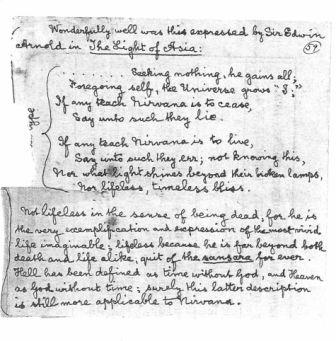 Wonderfully well was this expressed by Sir Edwin
Arnold in The Light of Asia:
51
........ Seeking nothing, he gains all;
Foregoing self, the Universe grows "I;"
If any teach Nirvana is to cease,
Say unto such they lie.
If any teach Nirvana is to live,
Say unto such they err; not knowing this,
Nor what light shines beyond their broken lamps,
Nor lifeless, timeless bliss.
type
Not lifeless in the sense of being dead, for he is
the very exemplification and expression of the most vivid
life imaginable; lifeless because he is far beyond both
death and life alike, quit of the sansara for ever.
Hell has been defined as time without God, and Heaven
as God without time; surely this latter description
is still more applicable to Nirvana.